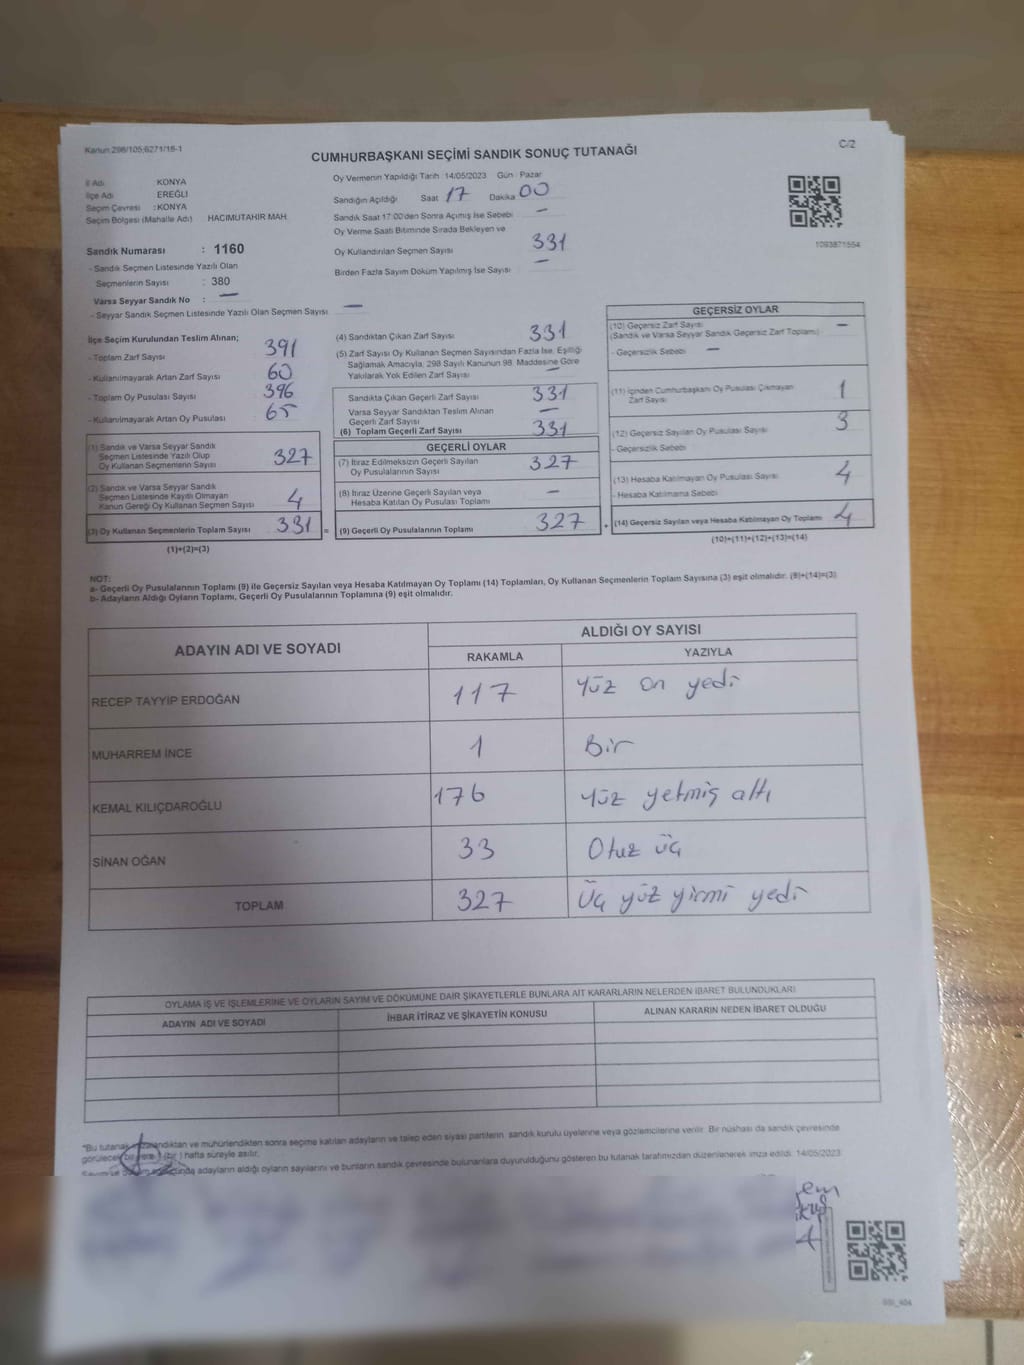 Kanun:298/105;6271/18-1
C/2
CUMHURBAŞKANI SEÇİMİ SANDIK SONUÇ TUTANAĞI
İl Adı : KONYA
İlçe Adı : EREĞLİ
Seçim Çevresi : KONYA
Seçim Bölgesi (Mahalle Adı) HACIMUTAHİR MAH.
Sandık Numarası : 1160
- Sandık Seçmen Listesinde Yazılı Olan
Seçmenlerin Sayısı : 380
Varsa Seyyar Sandık No : —
- Seyyar Sandık Seçmen Listesinde Yazılı Olan Seçmen Sayısı : —
Oy Vermenin Yapıldığı Tarih :14/05/2023 Gün : Pazar
Sandığın Açıldığı Saat 17 Dakika 00
Sandık Saat 17:00'den Sonra Açılmış İse Sebebi : —
Oy Verme Saati Bitiminde Sırada Bekleyen ve
Oy Kullandırılan Seçmen Sayısı 331
Birden Fazla Sayım Döküm Yapılmış İse Sayısı : —
1093871554
İlçe Seçim Kurulundan Teslim Alınan;
- Toplam Zarf Sayısı : 391
- Kullanılmayarak Artan Zarf Sayısı : 60
- Toplam Oy Pusulası Sayısı : 396
- Kullanılmayarak Artan Oy Pusulası : 65
(1) Sandık ve Varsa Seyyar Sandık
Seçmen Listesinde Yazılı Olup
Oy Kullanan Seçmenlerin Sayısı 327
(2) Sandık ve Varsa Seyyar Sandık
Seçmen Listesinde Kayıtlı Olmayan
Kanun Gereği Oy Kullanan Seçmen Sayısı 4
(3) Oy Kullanan Seçmenlerin Toplam Sayısı 331 =
(1)+(2)=(3)
(4) Sandıktan Çıkan Zarf Sayısı 331
(5) Zarf Sayısı Oy Kullanan Seçmen Sayısından Fazla İse, Eşitliği
Sağlamak Amacıyla, 298 Sayılı Kanunun 98. Maddesine Göre
Yakılarak Yok Edilen Zarf Sayısı —
Sandıkta Çıkan Geçerli Zarf Sayısı 331
Varsa Seyyar Sandıktan Teslim Alınan
Geçerli Zarf Sayısı —
(6) Toplam Geçerli Zarf Sayısı 331
GEÇERLİ OYLAR
(7) İtiraz Edilmeksizin Geçerli Sayılan
Oy Pusulalarının Sayısı 327
(8) İtiraz Üzerine Geçerli Sayılan veya
Hesaba Katılan Oy Pusulası Toplamı —
(9) Geçerli Oy Pusulalarının Toplamı 327 +
GEÇERSİZ OYLAR
(10) Geçersiz Zarf Sayısı —
(Sandık ve Varsa Seyyar Sandık Geçersiz Zarf Toplamı)
- Geçersizlik Sebebi : —
(11) İçinden Cumhurbaşkanı Oy Pusulası Çıkmayan
Zarf Sayısı 1
(12) Geçersiz Sayılan Oy Pusulası Sayısı 3
- Geçersizlik Sebebi
(13) Hesaba Katılmayan Oy Pusulası Sayısı 4
- Hesaba Katılmama Sebebi
(14) Geçersiz Sayılan veya Hesaba Katılmayan Oy Toplamı 4
(10)+(11)+(12)+(13)=(14)
NOT:
a- Geçerli Oy Pusulalarının Toplamı (9) ile Geçersiz Sayılan veya Hesaba Katılmayan Oy Toplamı (14) Toplamları, Oy Kullanan Seçmenlerin Toplam Sayısına (3) eşit olmalıdır. (9)+(14)=(3)
b- Adayların Aldığı Oyların Toplamı, Geçerli Oy Pusulalarının Toplamına (9) eşit olmalıdır.
ADAYIN ADI VE SOYADI
ALDIĞI OY SAYISI
RAKAMLA YAZIYLA
RECEP TAYYİP ERDOĞAN 117 Yüz on yedi
MUHARREM İNCE 1 Bir
KEMAL KILIÇDAROĞLU 176 Yüz yetmiş altı
SİNAN OĞAN 33 Otuz üç
TOPLAM 327 Üç yüz yirmi yedi
OYLAMA İŞ VE İŞLEMLERİNE VE OYLARIN SAYIM VE DÖKÜMÜNE DAİR ŞİKAYETLERLE BUNLARA AİT KARARLARIN NELERDEN İBARET BULUNDUKLARI
ADAYIN ADI VE SOYADI İHBAR İTİRAZ VE ŞİKAYETİN KONUSU ALINAN KARARIN NEDEN İBARET OLDUĞU
*Bu tutanak ve mühürlendikten sonra seçime katılan adayların ve talep eden siyasi partilerin sandık kurulu üyelerine veya gözlemcilerine verilir. Bir nüshası da sandık çevresinde
görülecek bir yere 1 (bir) hafta süreyle asılır.
adayların aldığı oyların sayılarını ve bunların sandık çevresinde bulunanlara duyurulduğunu gösteren bu tutanak tarafımızdan düzenlenerek imza edildi. 14/05/2023